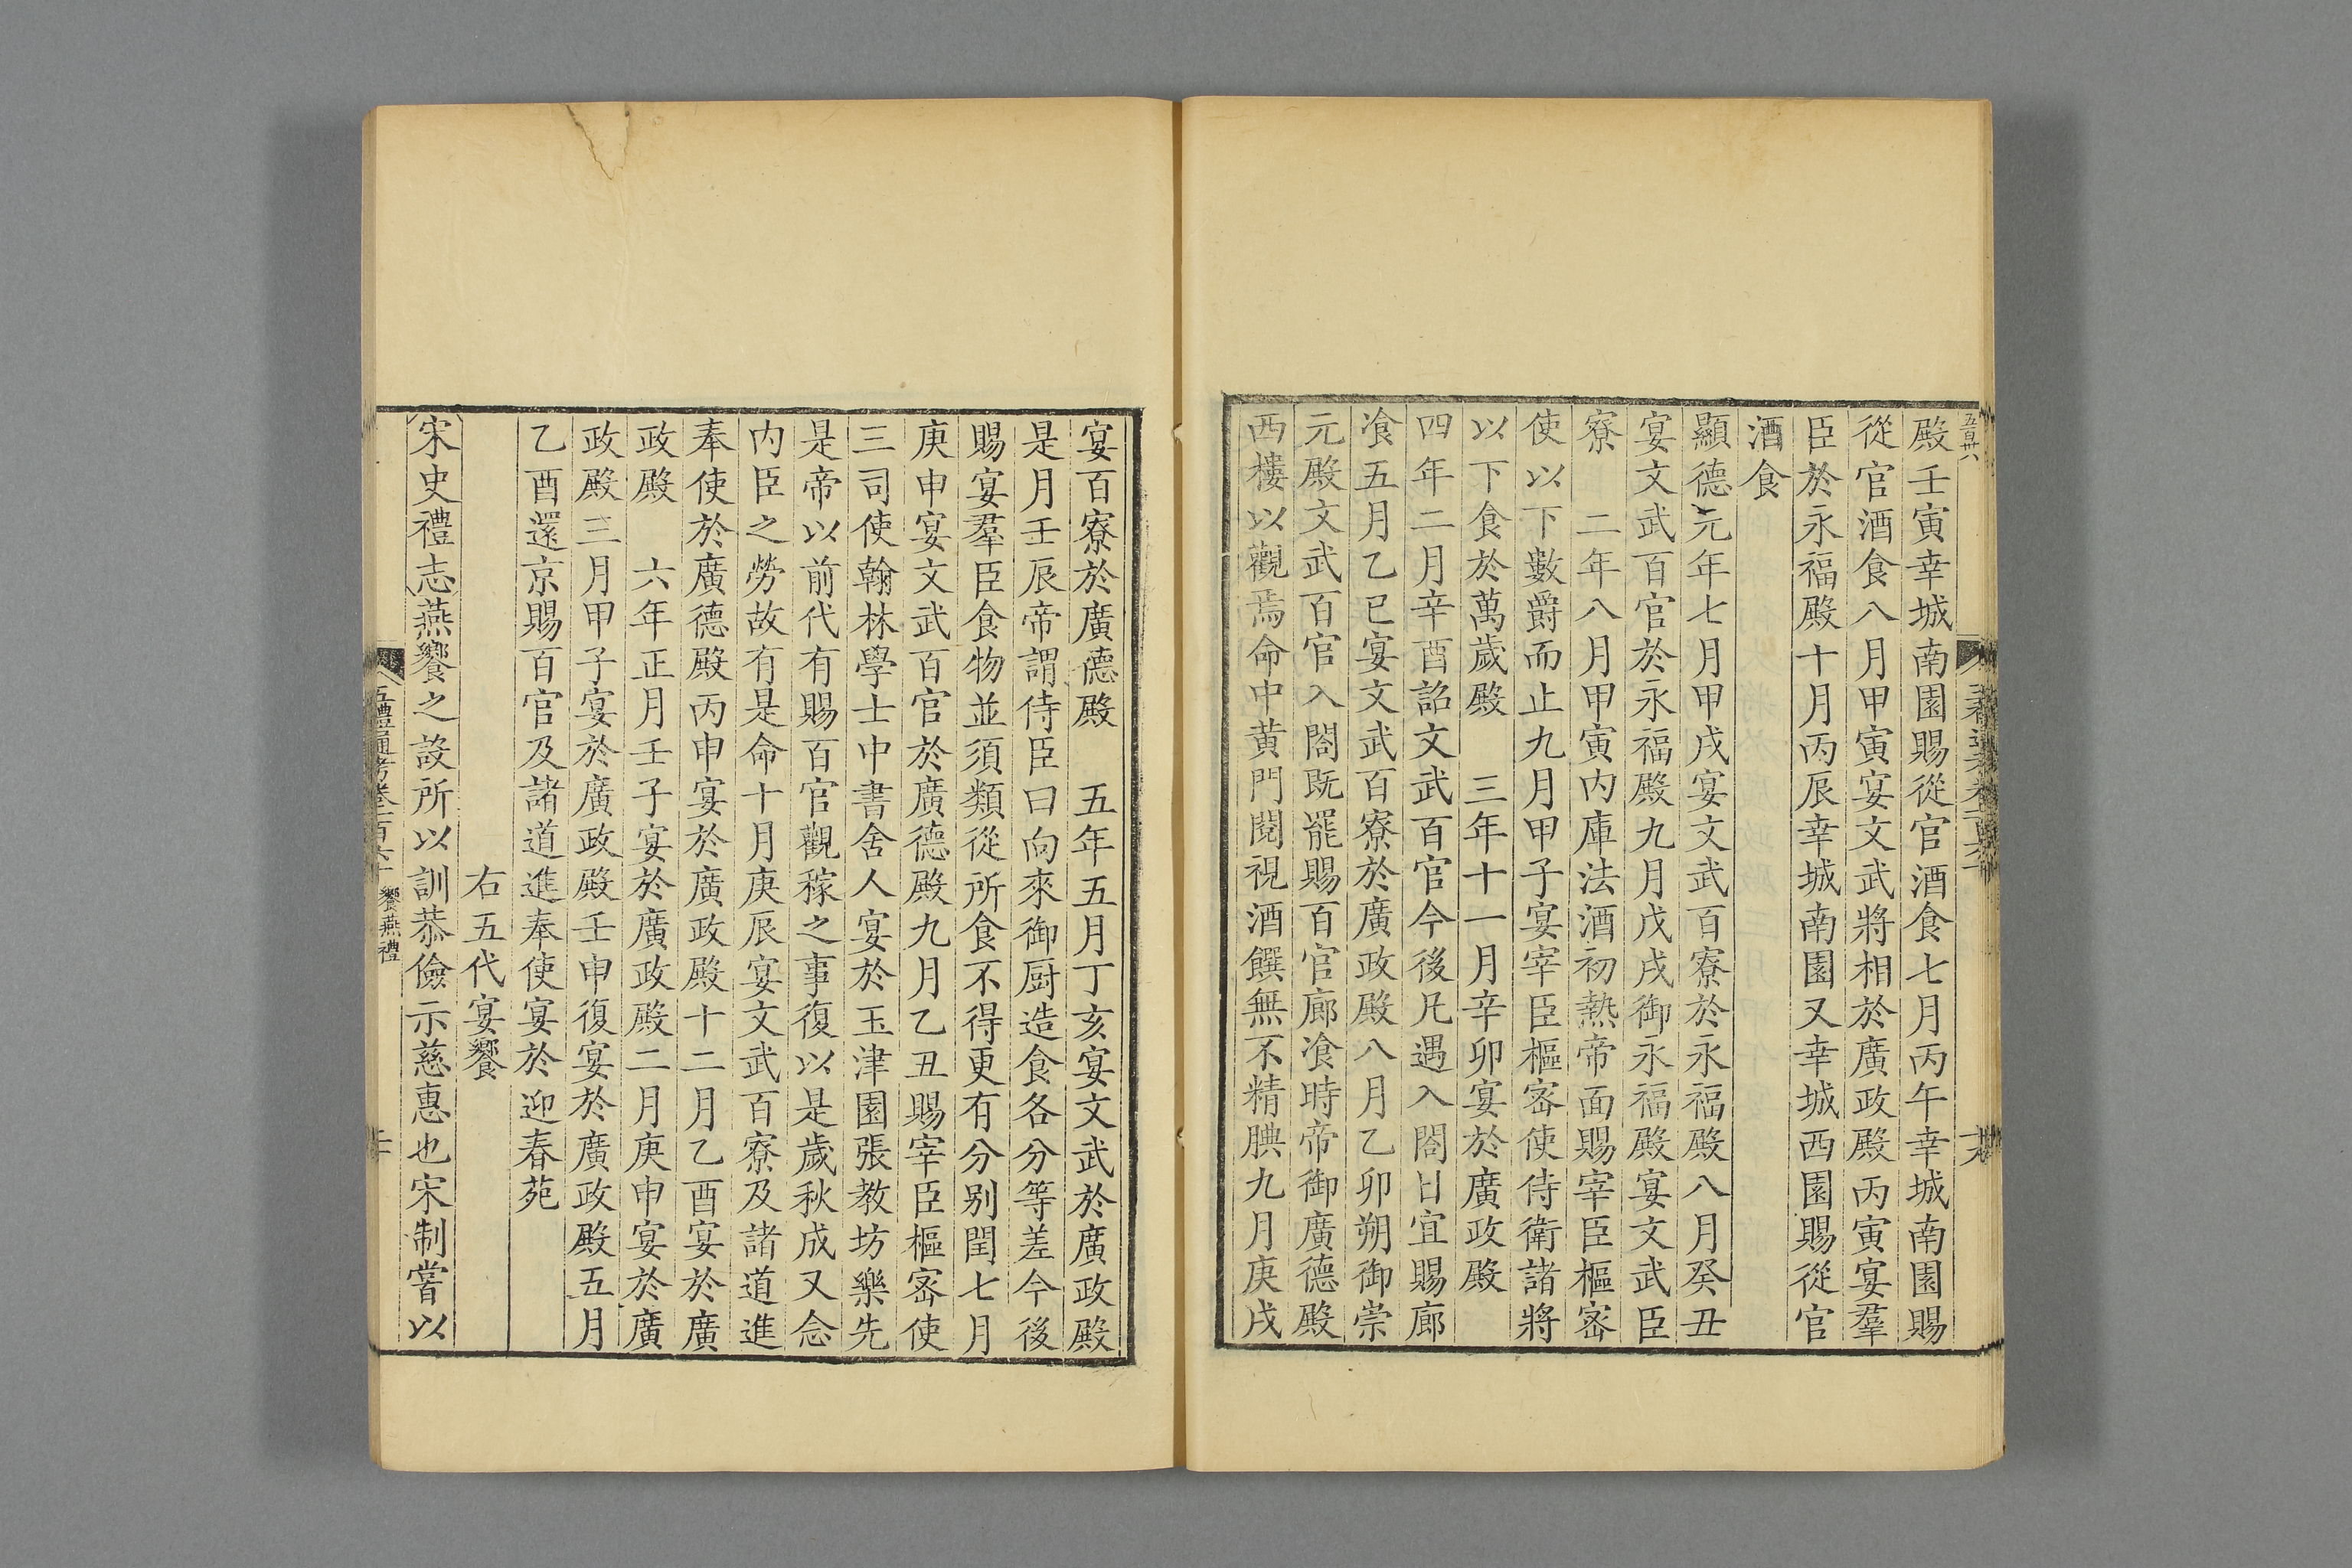 殿壬寅幸城南園賜從官酒食七月丙午幸城南園賜
從官酒食八月甲寅宴文武將相於廣政殿丙寅宴羣
臣於永福殿十月丙辰幸城南園又幸城西園賜從官
酒食
顯德元年七月甲戌宴文武百寮於永福殿八月癸丑
宴文武百官於永福殿九月戊戌御永福殿宴文武臣
寮　二年八月甲寅内庫法酒初熱帝面賜宰臣樞密
使以下數爵而止九月甲子宴宰臣樞密使侍衛諸將
以下食於萬歲殿　三年十一月辛卯宴於廣政殿
四年二月辛酉詔文武百官今後凡遇入閤日宜賜廊
飡五月乙巳宴文武百寮於廣政殿八月乙卯朔御崇
元殿文武百官入閤既罷賜百官廊飡時帝御廣德殿
西樓以觀焉命中黄門閱視酒饌無不精腆九月庚戌
宴百寮於廣德殿　五年五月丁亥宴文武於廣政殿
是月壬辰帝謂侍臣曰向來御厨造食各分等差今後
賜宴羣臣食物並須類從所食不得更有分别閏七月
庚申宴文武百官於廣德殿九月乙丑賜宰臣樞密使
三司使翰林學士中書舍人宴於玉津園張教坊樂先
是帝以前代有賜百官觀稼之事復以是歲秋成又念
内臣之勞故有是命十月庚辰宴文武百寮及諸道進
奉使於廣德殿丙申宴於廣政殿十二月乙酉宴於廣
政殿　六年正月壬子宴於廣政殿二月庚申宴於廣
政殿三月甲子宴於廣政殿壬申復宴於廣政殿五月
乙酉還京賜百官及諸道進奉使宴於迎春苑
右五代宴饗
宋史禮志燕饗之設所以訓恭儉示慈惠也宋制嘗以
五禮通考卷一百六十 饗燕禮